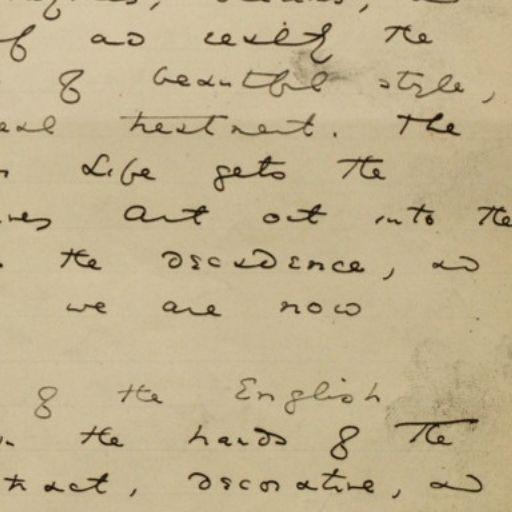 and reality the
of beautiful style,
eal treatment. The
Life gets the
ves Art out into the
the decadence, and
we are now
of the English
in the hands of the
tract, decorative, and